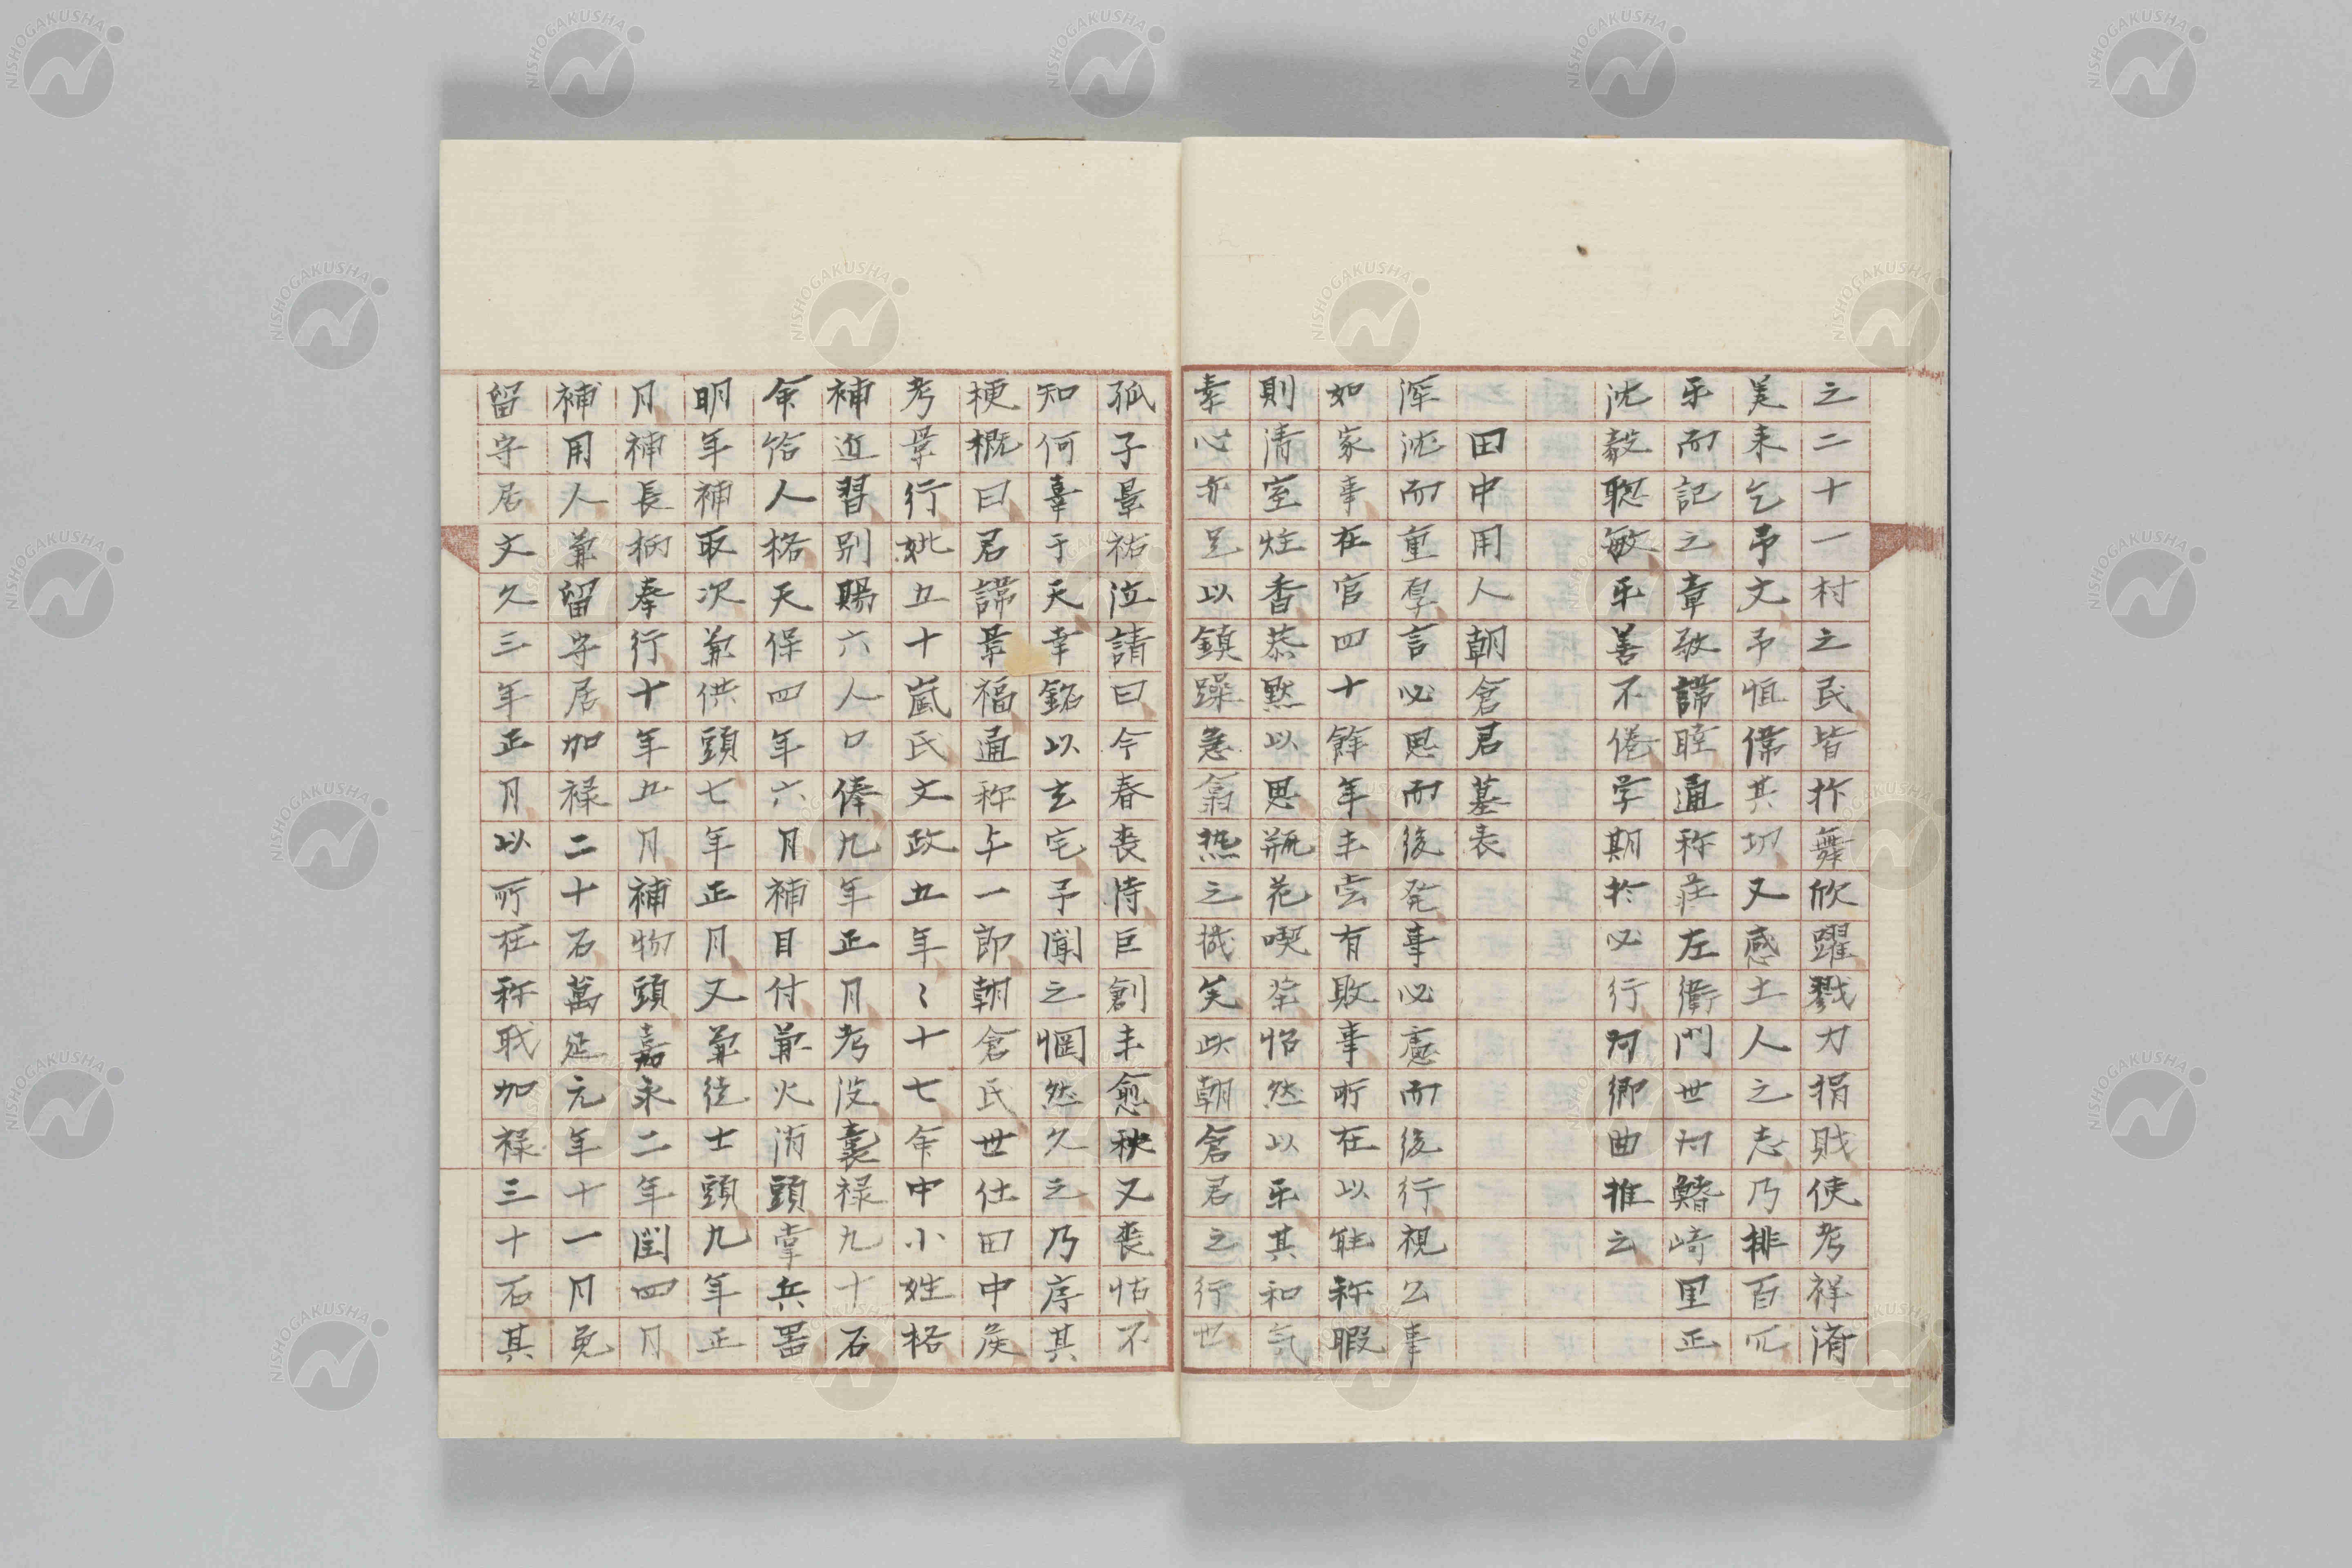 之二十一村之民皆抃舞欣躍戮力捐財使考祥済
美来乞予文予恒偉其功又感土人之志乃排百冗
乎而記之章敬諱睦通称荘左衛門世為鰭崎里正
沈毅聡敏乎善不倦学期於必行為郷曲推云
田中用人朝倉君墓表
渾沈而重厚言必思而後発事必慮而後行視公事
如家事在官四十餘年未嘗有敗事所在以能称暇
則清室炷香恭黙以思瓶花喫茶怡然以楽其和気
素心亦足以鎮躁急翕熱之機矣此朝倉君之行世
孤子景祐泣請曰今春喪恃巨創未愈秧又喪怙不
知何辜于天幸銘以玄宅予聞之惘然久之乃序其
梗概曰君諱景福通称与一郎朝倉氏世仕田中侯
考景行妣五十嵐氏文政五年〻十七命中小姓格
補近習別賜六人口俸九年正月考没襲禄九十石
命給人格天保四年六月補目付兼火消頭掌兵器
明年補取次兼供頭七年正月又兼徒士頭九年正
月補長柄奉行十年五月補物頭嘉永二年閏四月
補用人兼留守居加禄二十石萬延元年十一月免
留守居文久三年正月以所在称職加禄三十石其
NISHOGAKUSHA